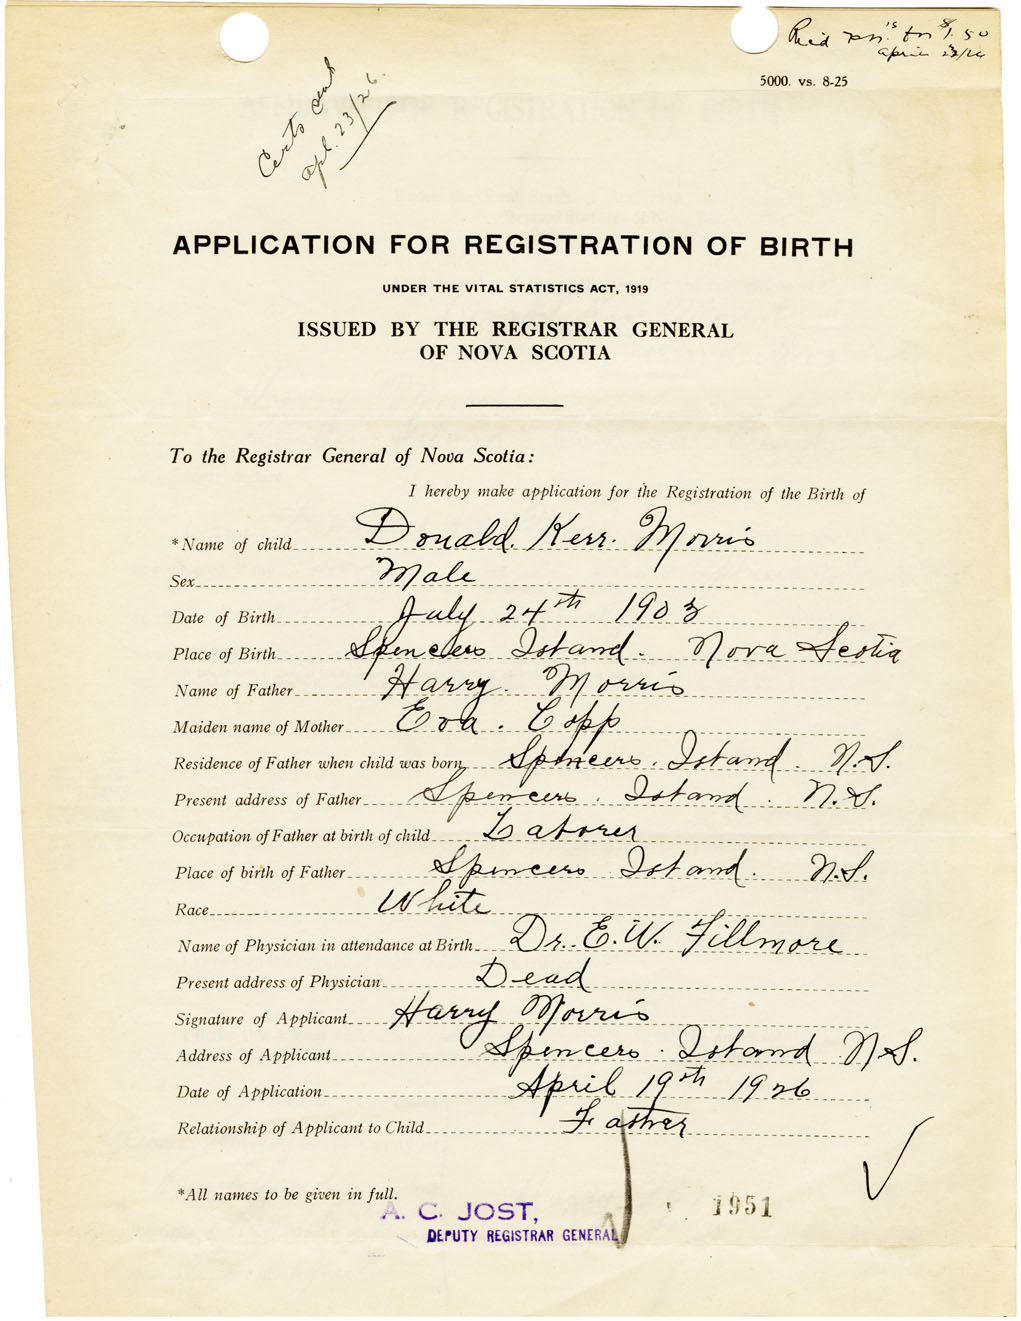 Rec'd for $1.50
april 23/26
5000. vs. 8-25
Certs sent
apl. 23/26.
APPLICATION FOR REGISTRATION OF BIRTH
UNDER THE VITAL STATISTICS ACT, 1919
ISSUED BY THE REGISTRAR GENERAL
OF NOVA SCOTIA
To the Registrar General of Nova Scotia:
I hereby make application for the Registration of the Birth of
*Name of child Donald. Kerr. Morris
Sex Male
Date of Birth July 24th 1903
Place of Birth Spencers Island. Nova Scotia
Name of Father Harry. Morris
Maiden name of Mother Eva. Copp
Residence of Father when child was born Spencers. Island. N.S.
Present address of Father Spencers. Island. N.S.
Occupation of Father at birth of child Laborer
Place of birth of Father Spencers Island. N.S.
Race White
Name of Physician in attendance at Birth Dr. E.W. Fillmore
Present address of Physician Dead
Signature of Applicant Harry Morris
Address of Applicant Spencers. Island N.S.
Date of Application April 19th 1926
Relationship of Applicant to Child Father
*All names to be given in full.
A. C. JOST,
DEPUTY REGISTRAR GENERAL
1951